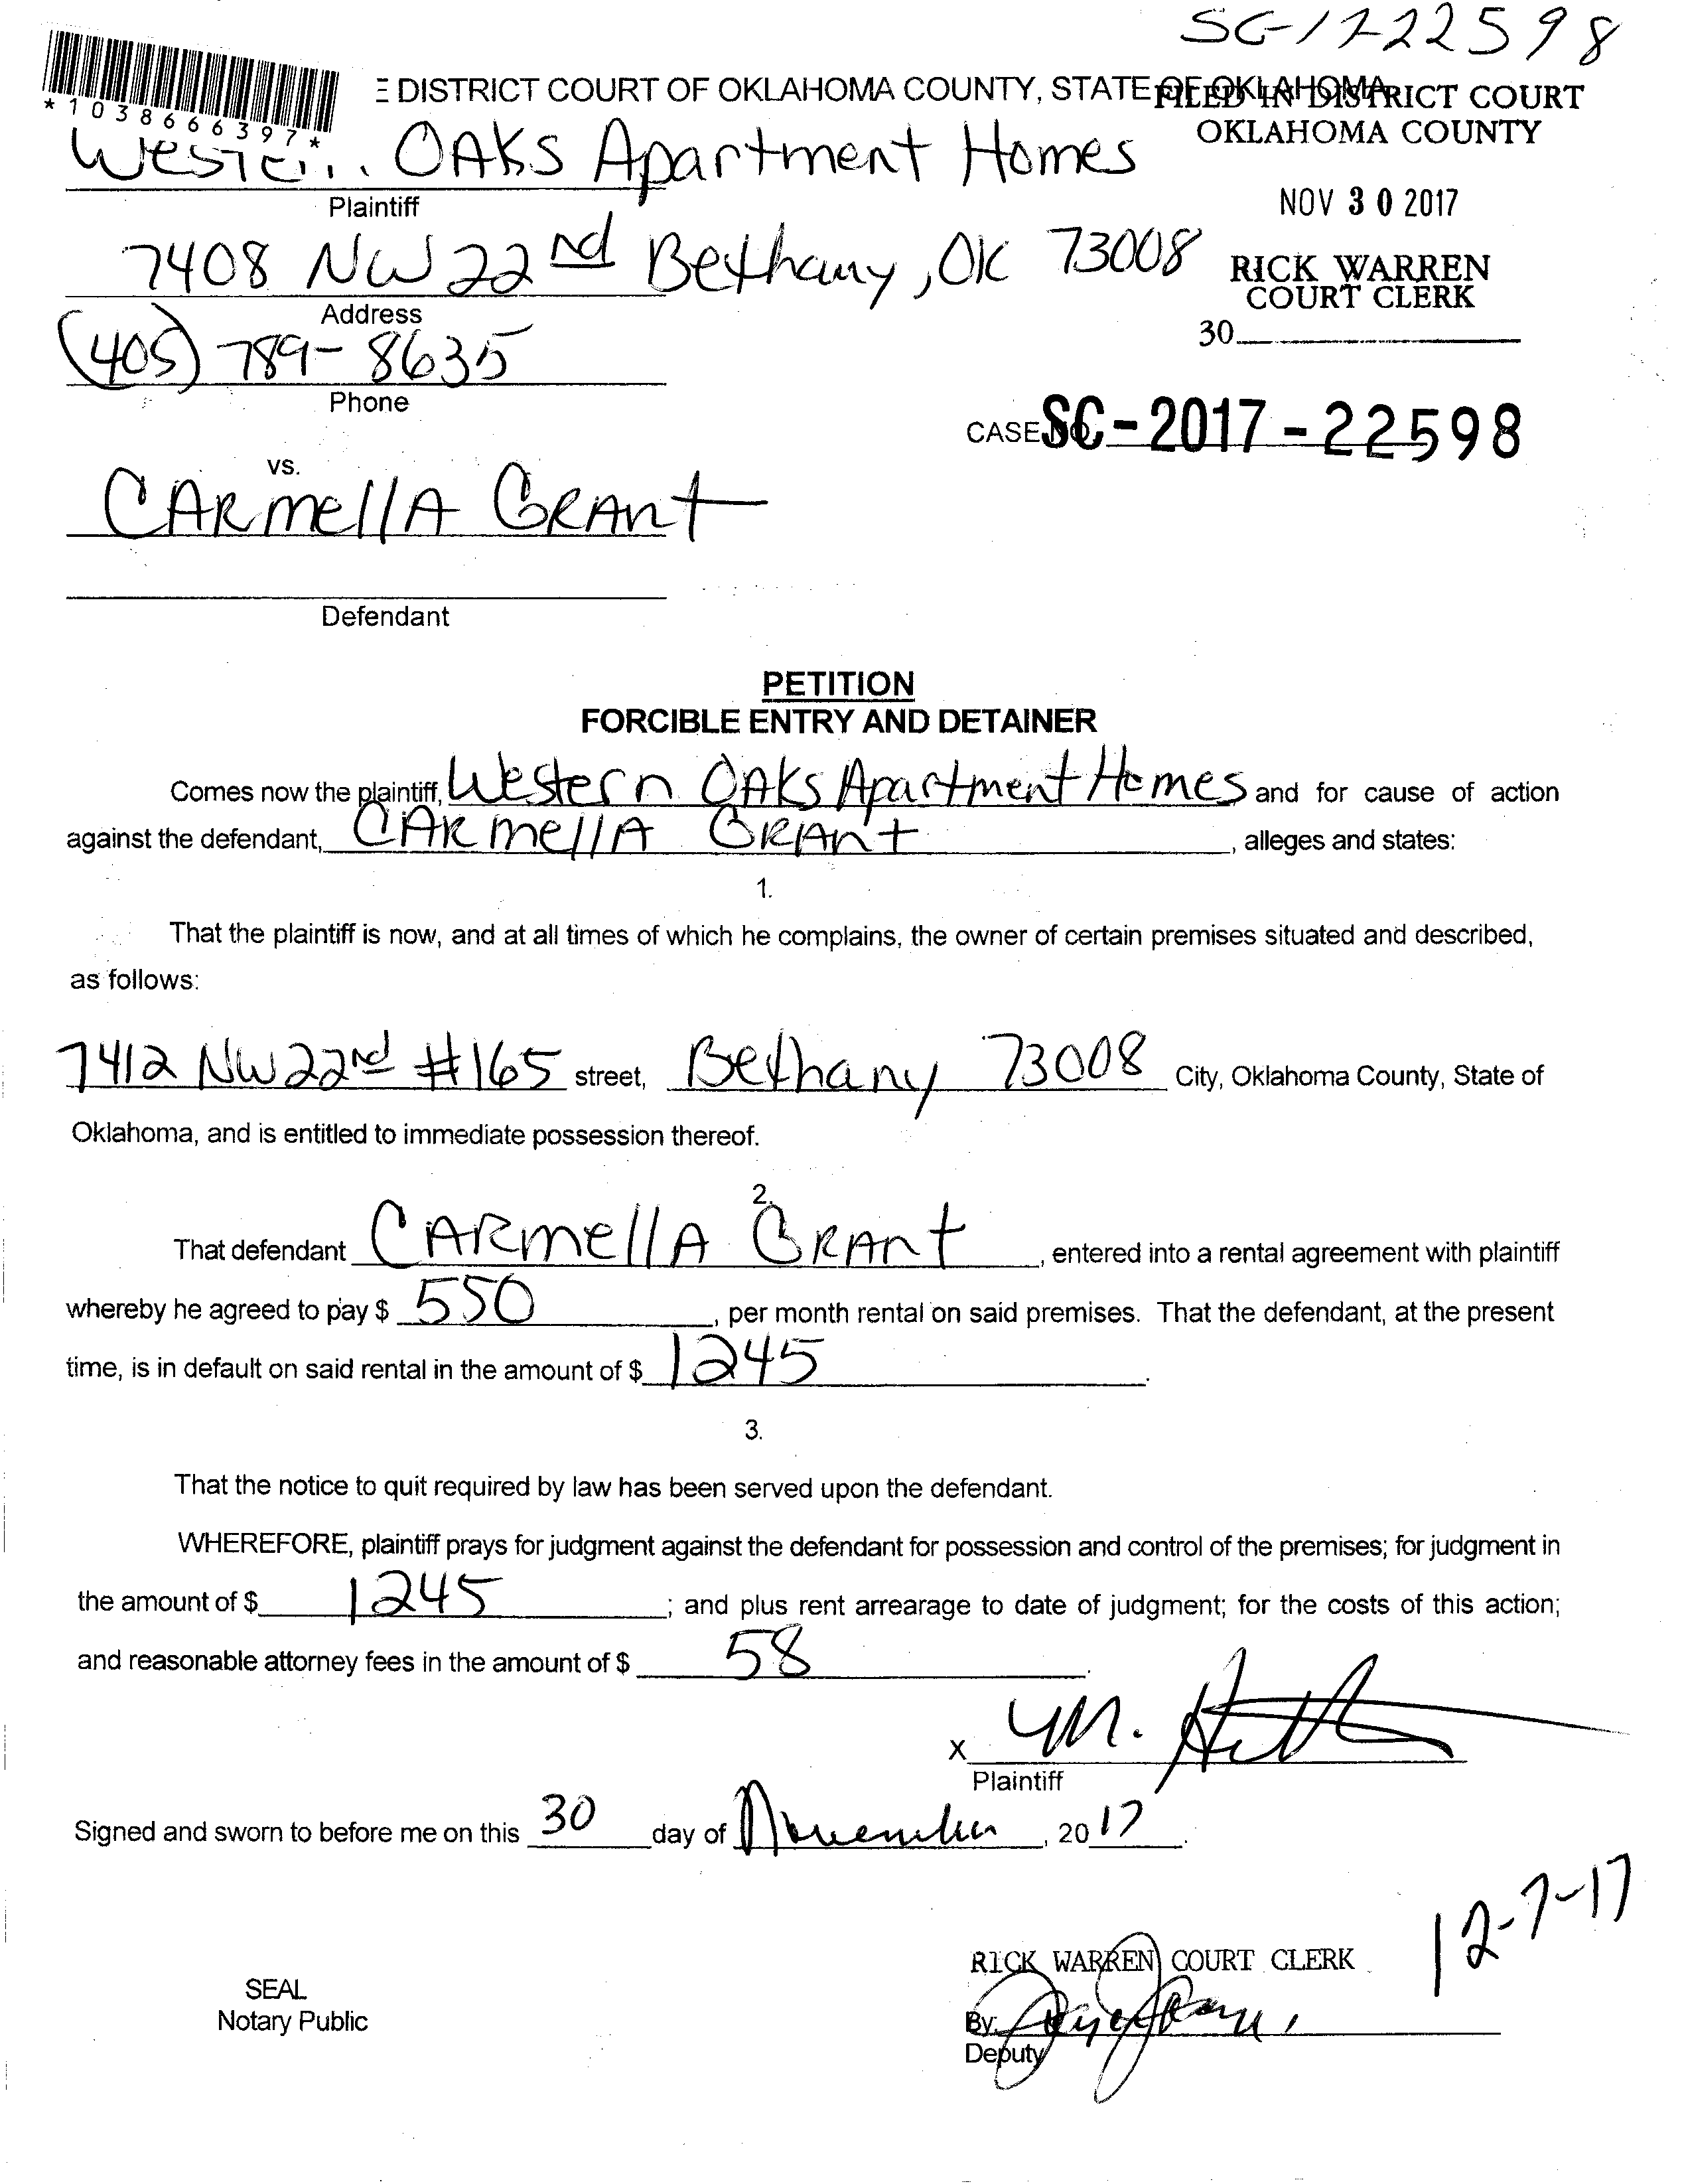 SC-1722598
*1038666397*
DISTRICT COURT OF OKLAHOMA COUNTY, STATE OF OKLAHOMA
FILED IN DISTRICT COURT
OKLAHOMA COUNTY
Western OAKS Apartment Homes
Plaintiff
NOV 30 2017
7408 NW 22nd Bethany, OK 73008
RICK WARREN
COURT CLERK
Address
30
(405) 789-8635
Phone
CASE NO. SC-2017-22598
vs.
CARmellA GRAnt
Defendant
PETITION
FORCIBLE ENTRY AND DETAINER
Comes now the plaintiff, Western OAKS Apartment Homes and for cause of action
against the defendant, CARmellA GRAnt, alleges and states:
1.
That the plaintiff is now, and at all times of which he complains, the owner of certain premises situated and described,
as follows:
7412 NW 22nd #165 street, Bethany 73008 City, Oklahoma County, State of
Oklahoma, and is entitled to immediate possession thereof.
2.
That defendant CARmellA GRAnt, entered into a rental agreement with plaintiff
whereby he agreed to pay $ 550, per month rental on said premises. That the defendant, at the present
time, is in default on said rental in the amount of $ 1245.
3.
That the notice to quit required by law has been served upon the defendant.
WHEREFORE, plaintiff prays for judgment against the defendant for possession and control of the premises; for judgment in
the amount of $ 1245; and plus rent arrearage to date of judgment; for the costs of this action;
and reasonable attorney fees in the amount of $ 58.
X
Plaintiff
Signed and sworn to before me on this 30 day of November, 2017.
12-7-17
RICK WARREN COURT CLERK
SEAL
Notary Public
By:
Deputy